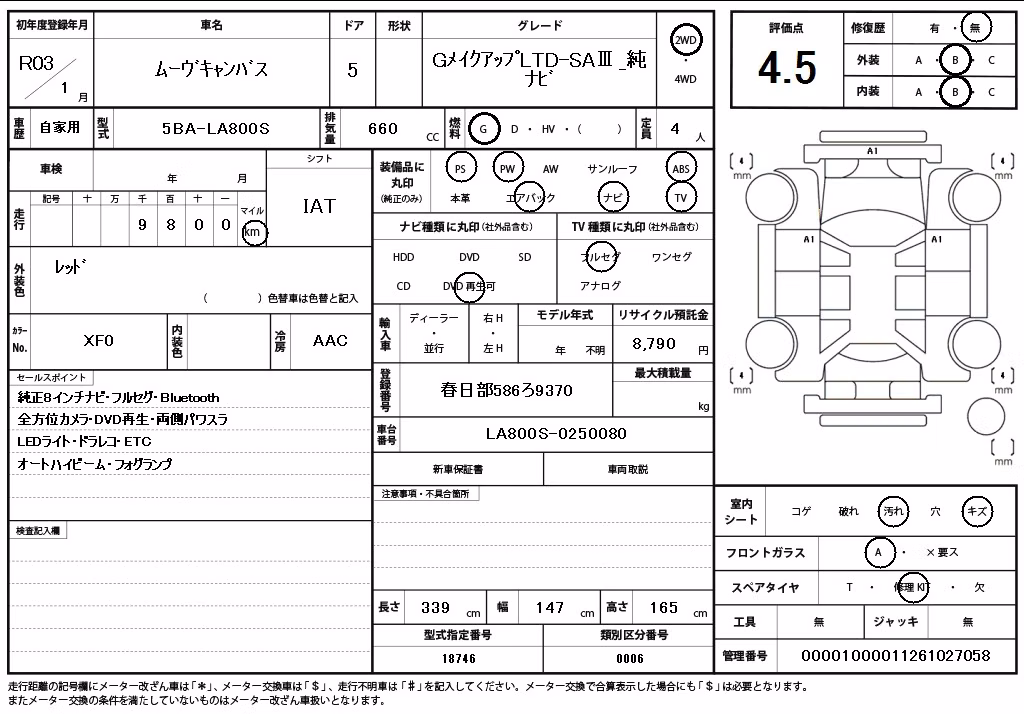 初年度登録年月 車名 ドア 形状 グレード
R03 / 1 月 ムーヴキャンバス 5 GメイクアップLTD-SAⅢ_純ナビ 2WD ・ 4WD
車歴 自家用 型式 5BA-LA800S 排気量 660 CC 燃料 G D ・ HV ・ ( ) 定員 4 人
車検 年 月 シフト IAT
走行 記号 十 万 千 百 十 一 マイル km
9 8 0 0
外装色 レッド
( ) 色替車は色替と記入
カラーNo. XF0 内装色 冷房 AAC
セールスポイント
純正8インチナビ・フルセグ・Bluetooth
全方位カメラ・DVD再生・両側パワスラ
LEDライト・ドラレコ・ETC
オートハイビーム・フォグランプ
検査記入欄
装備品に丸印 (純正のみ) PS PW AW サンルーフ ABS
本革 エアバック ナビ TV
ナビ種類に丸印(社外品含む) TV種類に丸印(社外品含む)
HDD DVD SD フルセグ ワンセグ
CD DVD再生可 アナログ
輸入車 ディーラー ・ 並行 右H ・ 左H モデル年式 年 不明 リサイクル預託金 8,790 円
登録番号 春日部586ろ9370 最大積載量 kg
車台番号 LA800S-0250080
新車保証書 車両取説
注意事項・不具合箇所
長さ 339 cm 幅 147 cm 高さ 165 cm
型式指定番号 類別区分番号
18746 0006
評価点 4.5 修復歴 有 ・ 無
外装 A ・ B ・ C
内装 A ・ B ・ C
A1
4 mm 4 mm
A1 A1
4 mm 4 mm
mm
室内シート コゲ 破れ 汚れ 穴 キズ
フロントガラス A ・ ×要ス
スペアタイヤ T ・ 修理KIT ・ 欠
工具 無 ジャッキ 無
管理番号 00001000011261027058
走行距離の記号欄にメーター改ざん車は「＊」、メーター交換車は「＄」、走行不明車は「＃」を記入してください。メーター交換で合算表示した場合にも「＄」は必要となります。
またメーター交換の条件を満たしていないものはメーター改ざん車扱いとなります。